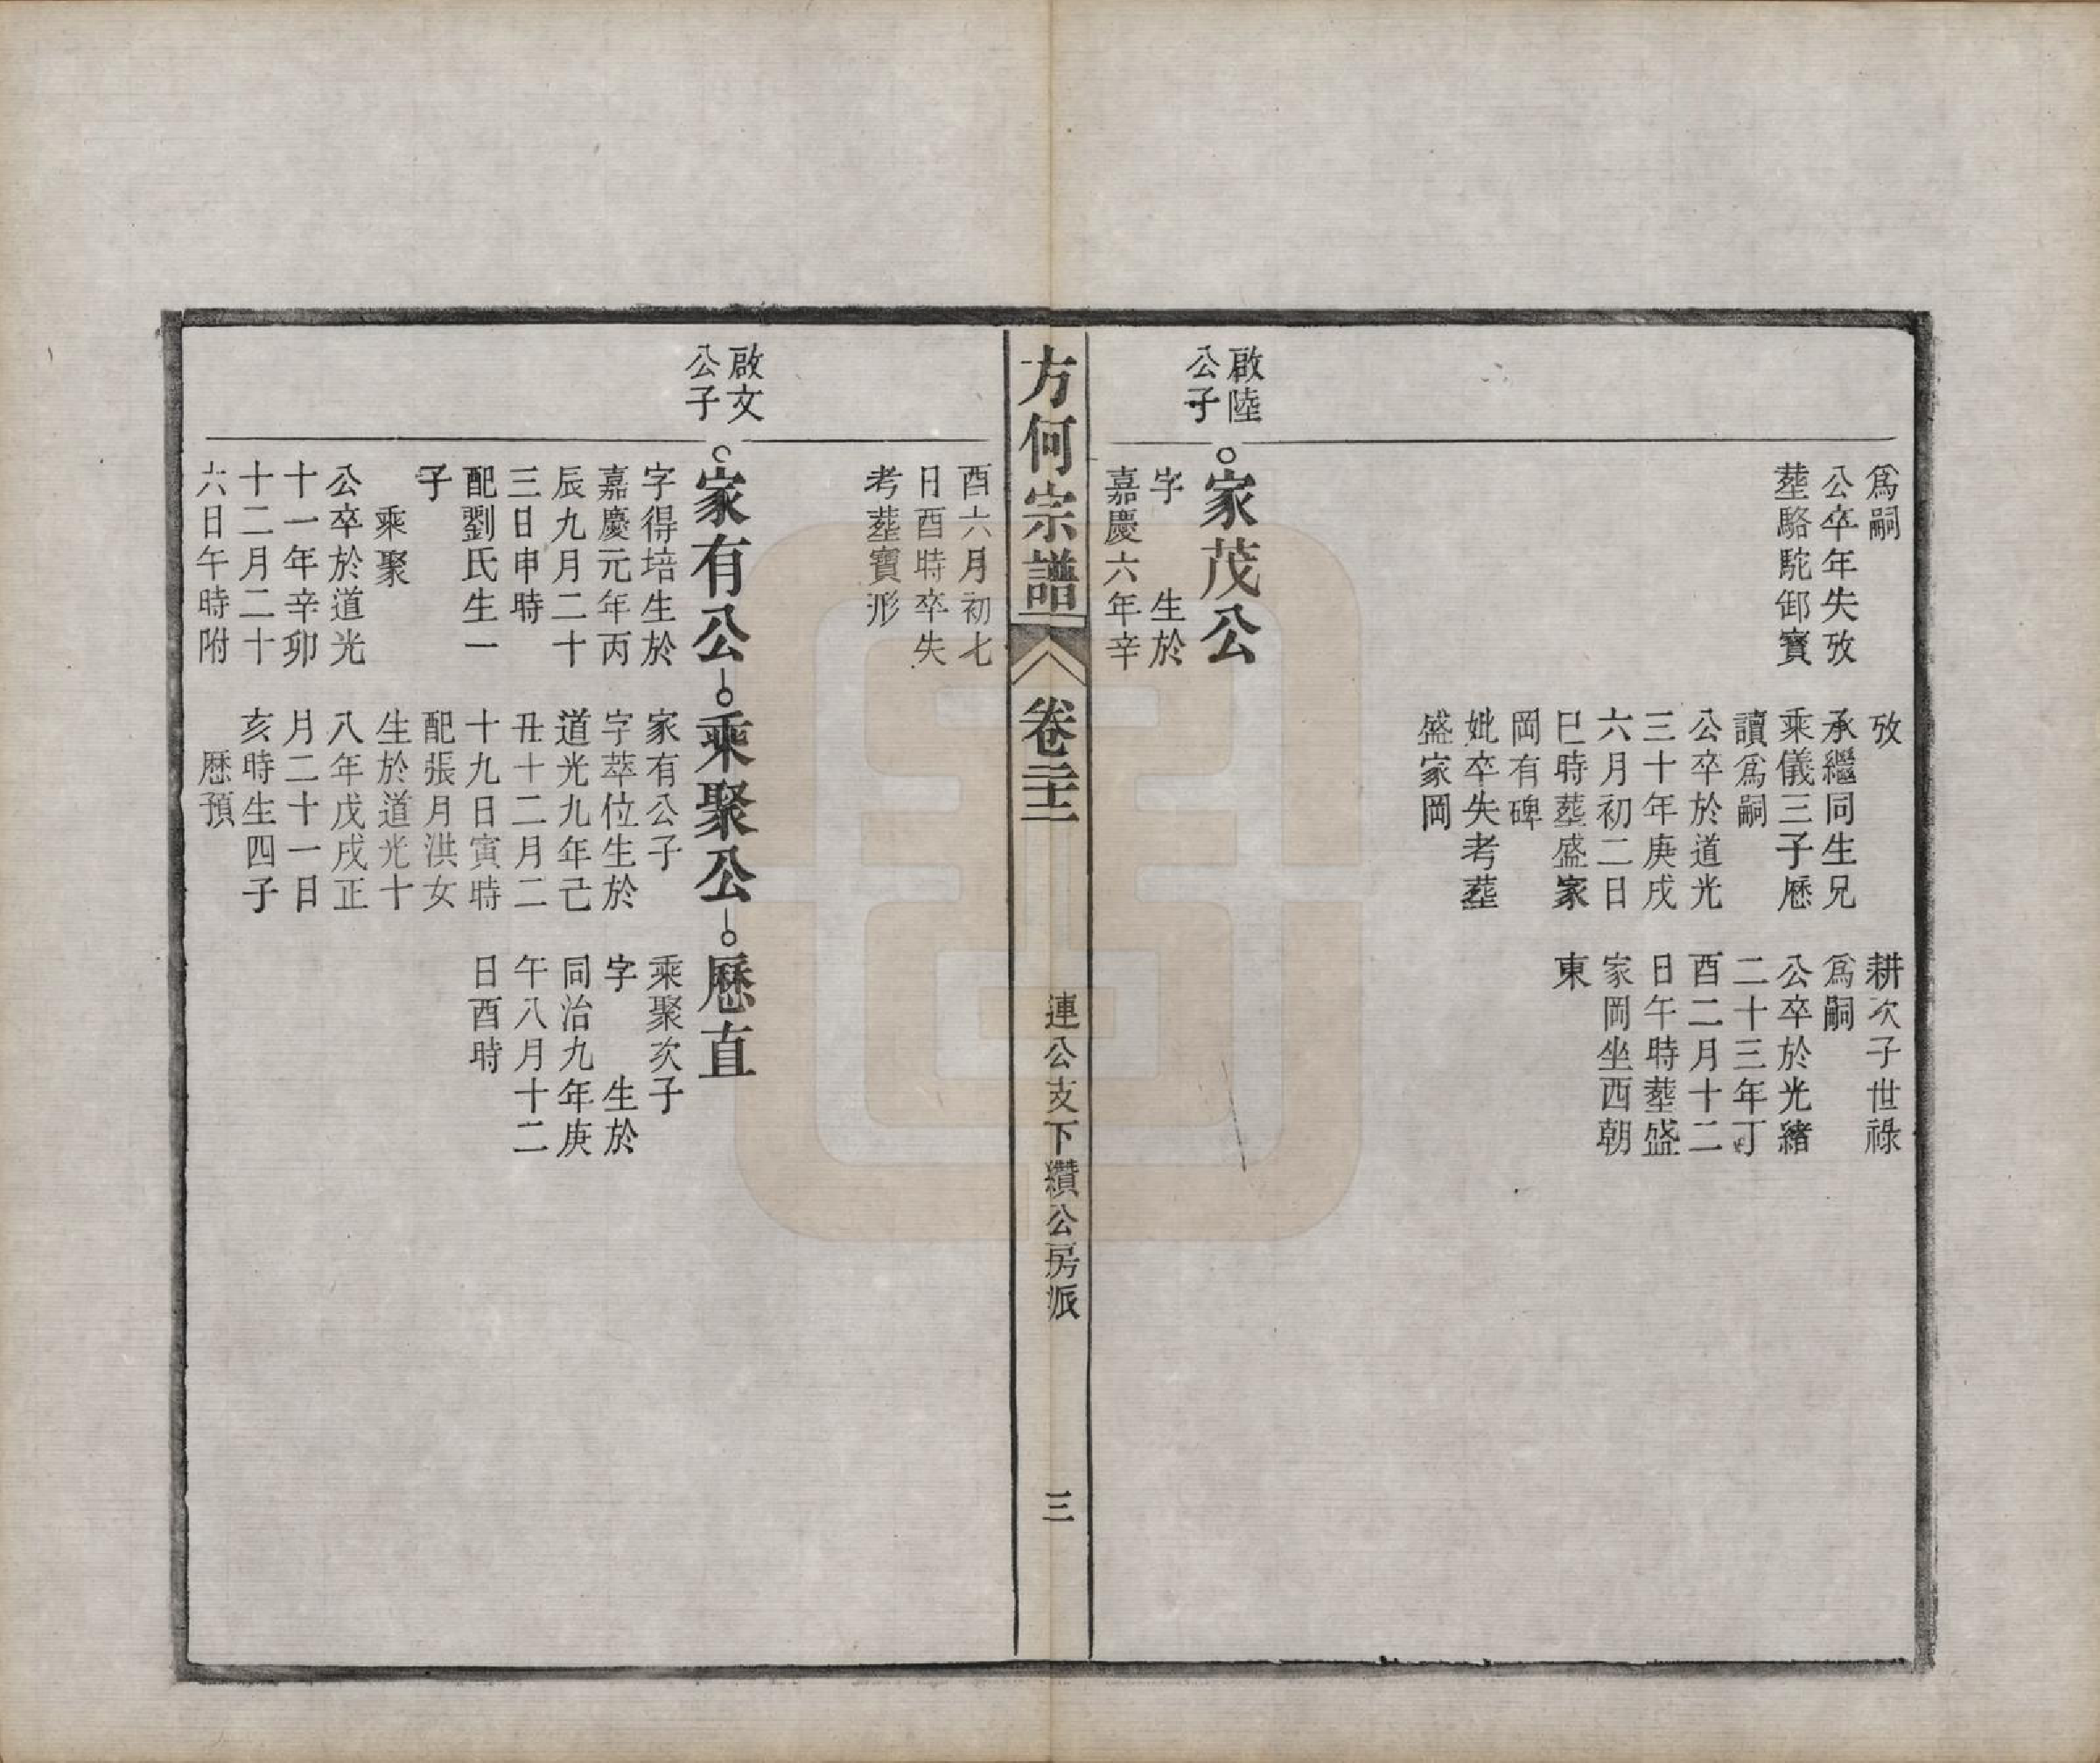 爲嗣
公卒年失攷
塟駱駝卸寳
攷
承繼同生兄
乘儀三子歷
讀爲嗣
公卒於道光
三十年庚戌
六月初二日
巳時塟盛家
岡有碑
妣卒失考塟
盛家岡
耕次子世祿
爲嗣
公卒於光緒
二十三年丁
酉二月十二
日午時塟盛
家岡坐西朝
東
啟陸
公子
家茂公
字 生於
嘉慶六年辛
方何宗譜 卷二十三 連公支下纘公房派 三
酉六月初七
日酉時卒失
考塟寶形
啟文
公子
家有公
字得培生於
嘉慶元年丙
辰九月二十
三日申時
配劉氏生一
子
乘聚
公卒於道光
十一年辛卯
十二月二十
六日午時附
乘聚公
家有公子
字萃位生於
道光九年己
丑十二月二
十九日寅時
配張月洪女
生於道光十
八年戊戌正
月二十一日
亥時生四子
歷預
歷直
乘聚次子
字 生於
同治九年庚
午八月十二
日酉時